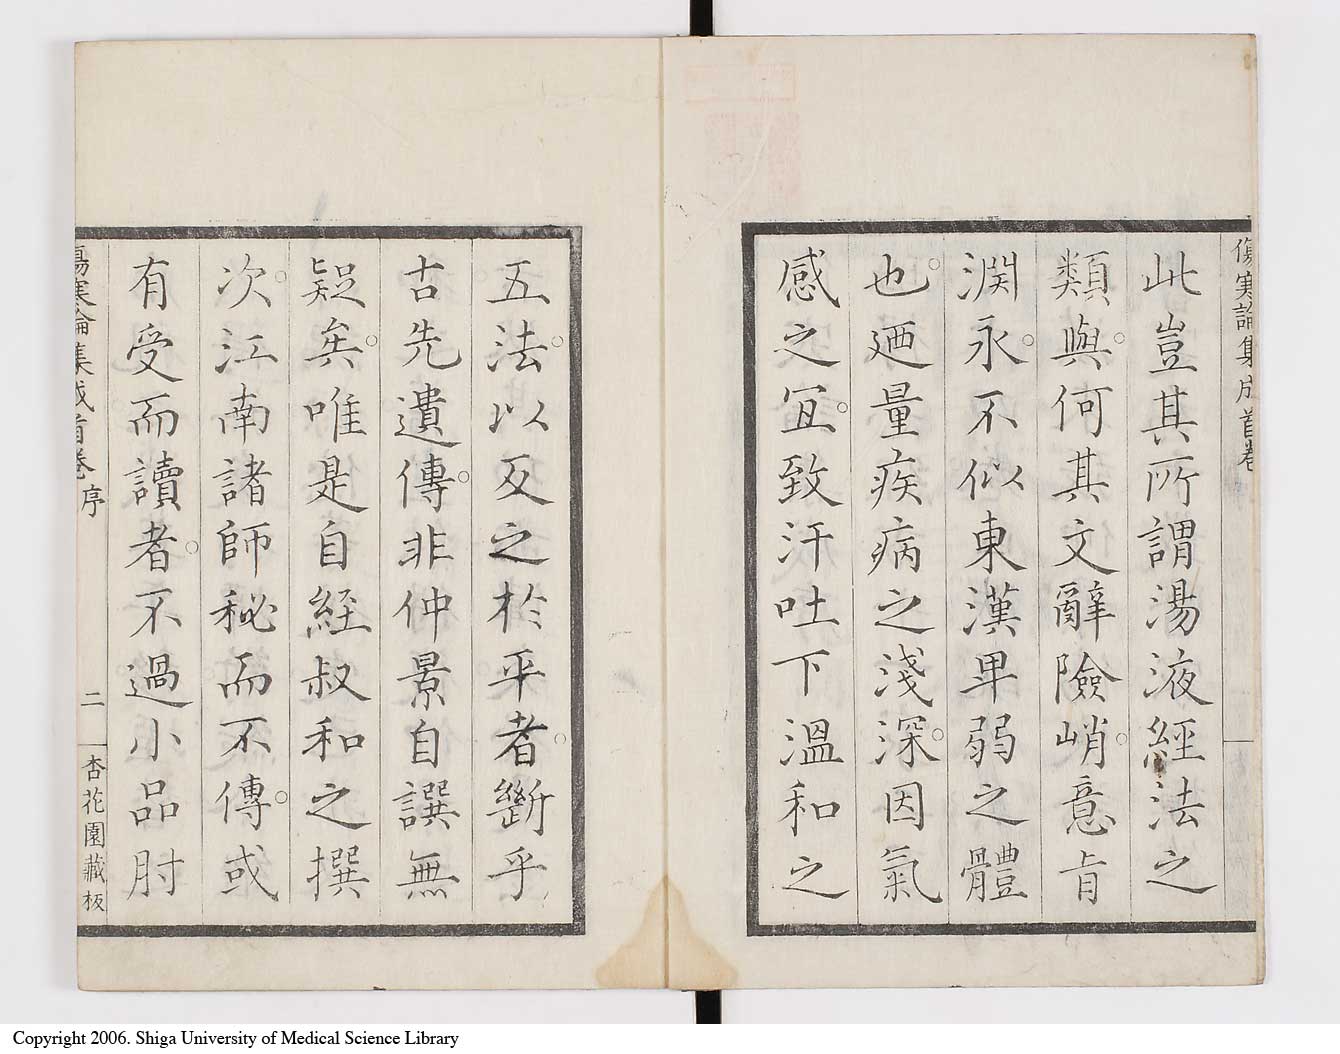 傷寒論集成首卷
此豈其所謂湯液經法之
類與。何其文辭險峭。意旨
淵永。不似東漢卑弱之體
也。迺量疾病之淺深。因氣
感之宜。致汗吐下溫和之
五法。以反之於平者。斷乎
古先遺傳。非仲景自譔無
疑矣。唯是自經叔和之撰
次。江南諸師秘而不傳。或
有受而讀者。不過小品肘
傷寒論集成首卷 序 二 杏花園藏板
Copyright 2006. Shiga University of Medical Science Library